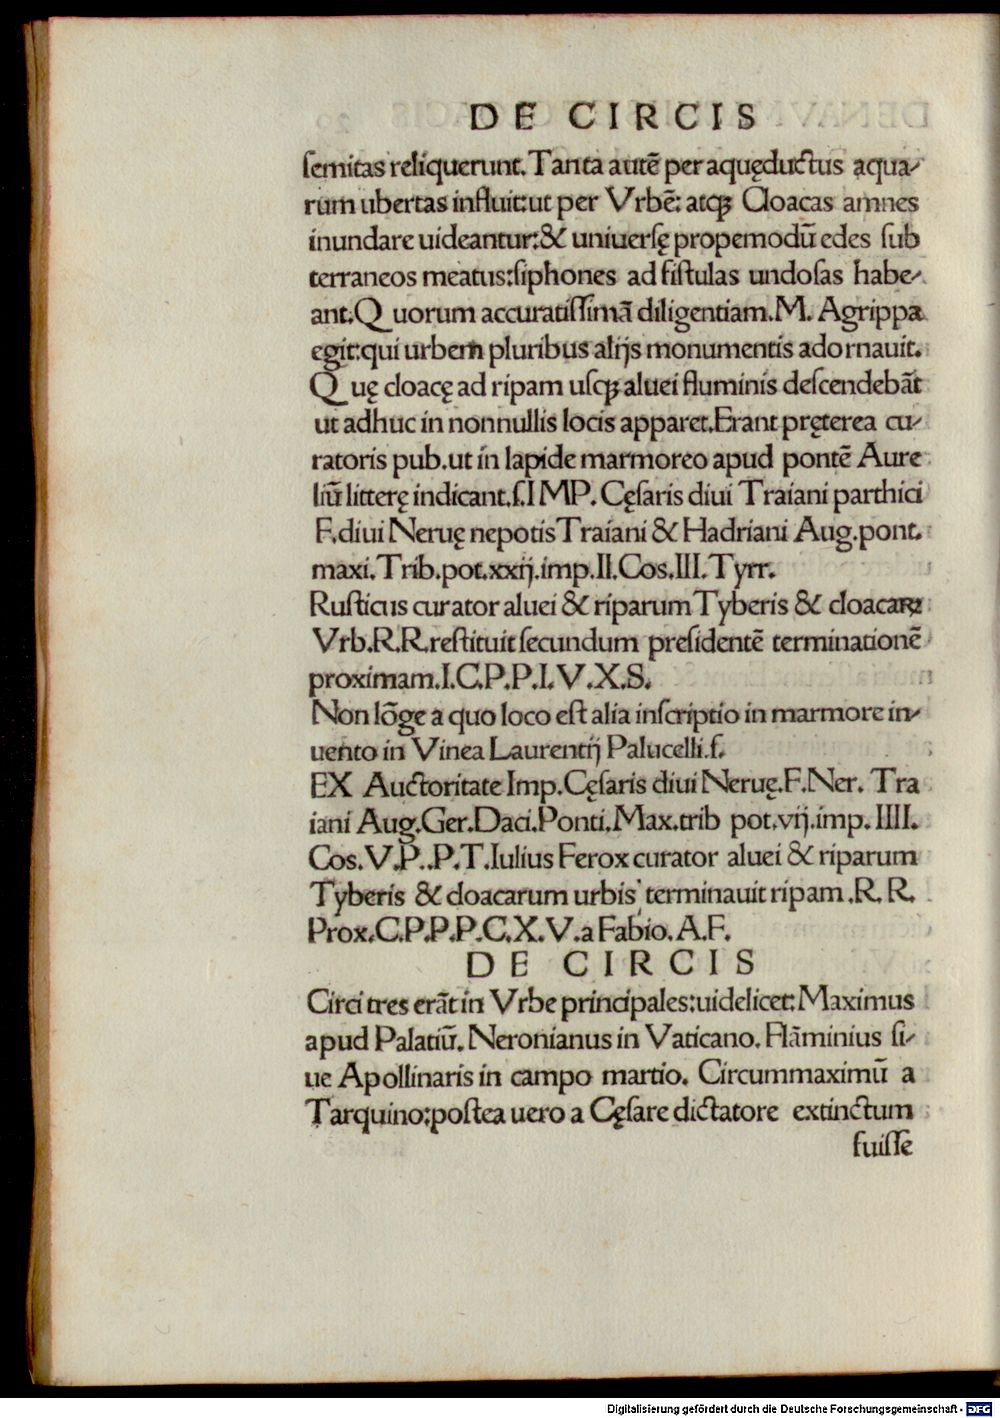 DE CIRCIS
ſemitas reliquerunt. Tanta autē per aquęductus aqua-
rum ubertas influit:ut per Vrbē: atqꝫ Cloacas amnes
inundare uideantur:& uniuerſę propemodū edes ſub
terraneos meatus:ſiphones ad fiſtulas undoſas habe-
ant.Quorum accuratiſſimā diligentiam.M. Agrippa
egit:qui urbem pluribus alijs monumentis adornauit.
Quę cloacę ad ripam uſqꝫ aluei fluminis deſcendebāt
ut adhuc in nonnullis locis apparet.Erant pręterea cu-
ratoris pub.ut in lapide marmoreo apud pontē Aure
liū litterę indicant.ſ.IMP. Cęſaris diui Traiani parthici
F.diui Neruę nepotis Traiani & Hadriani Aug.pont.
maxi.Trib.pot.xxij.imp.II.Cos.III.Tyrr.
Ruſticus curator aluei & riparum Tyberis & cloacaꝝ
Vrb.R.R.reſtituit ſecundum preſidentē terminationē
proximam.I.C.P.P.I.V.X.S.
Non lōge a quo loco eſt alia inſcriptio in marmore in-
uento in Vinea Laurentij Palucelli.ſ.
EX Auctoritate Imp.Cęſaris diui Neruę.F.Ner. Tra
iani Aug.Ger.Daci.Ponti.Max.trib pot.vij.imp.IIII.
Cos.V.P..P.T.Iulius Ferox curator aluei & riparum
Tyberis & cloacarum urbis terminauit ripam.R.R.
Prox.C.P.P.P.C.X.V.a Fabio.A.F.
DE CIRCIS
Circi tres erāt in Vrbe principales:uidelicet:Maximus
apud Palatiū. Neronianus in Vaticano. Flāminius ſi-
ue Apollinaris in campo martio. Circummaximū a
Tarquino:poſtea uero a Cęſare dictatore extinctum
fuiſſe
Digitalisierung gefördert durch die Deutsche Forschungsgemeinschaft - DFG